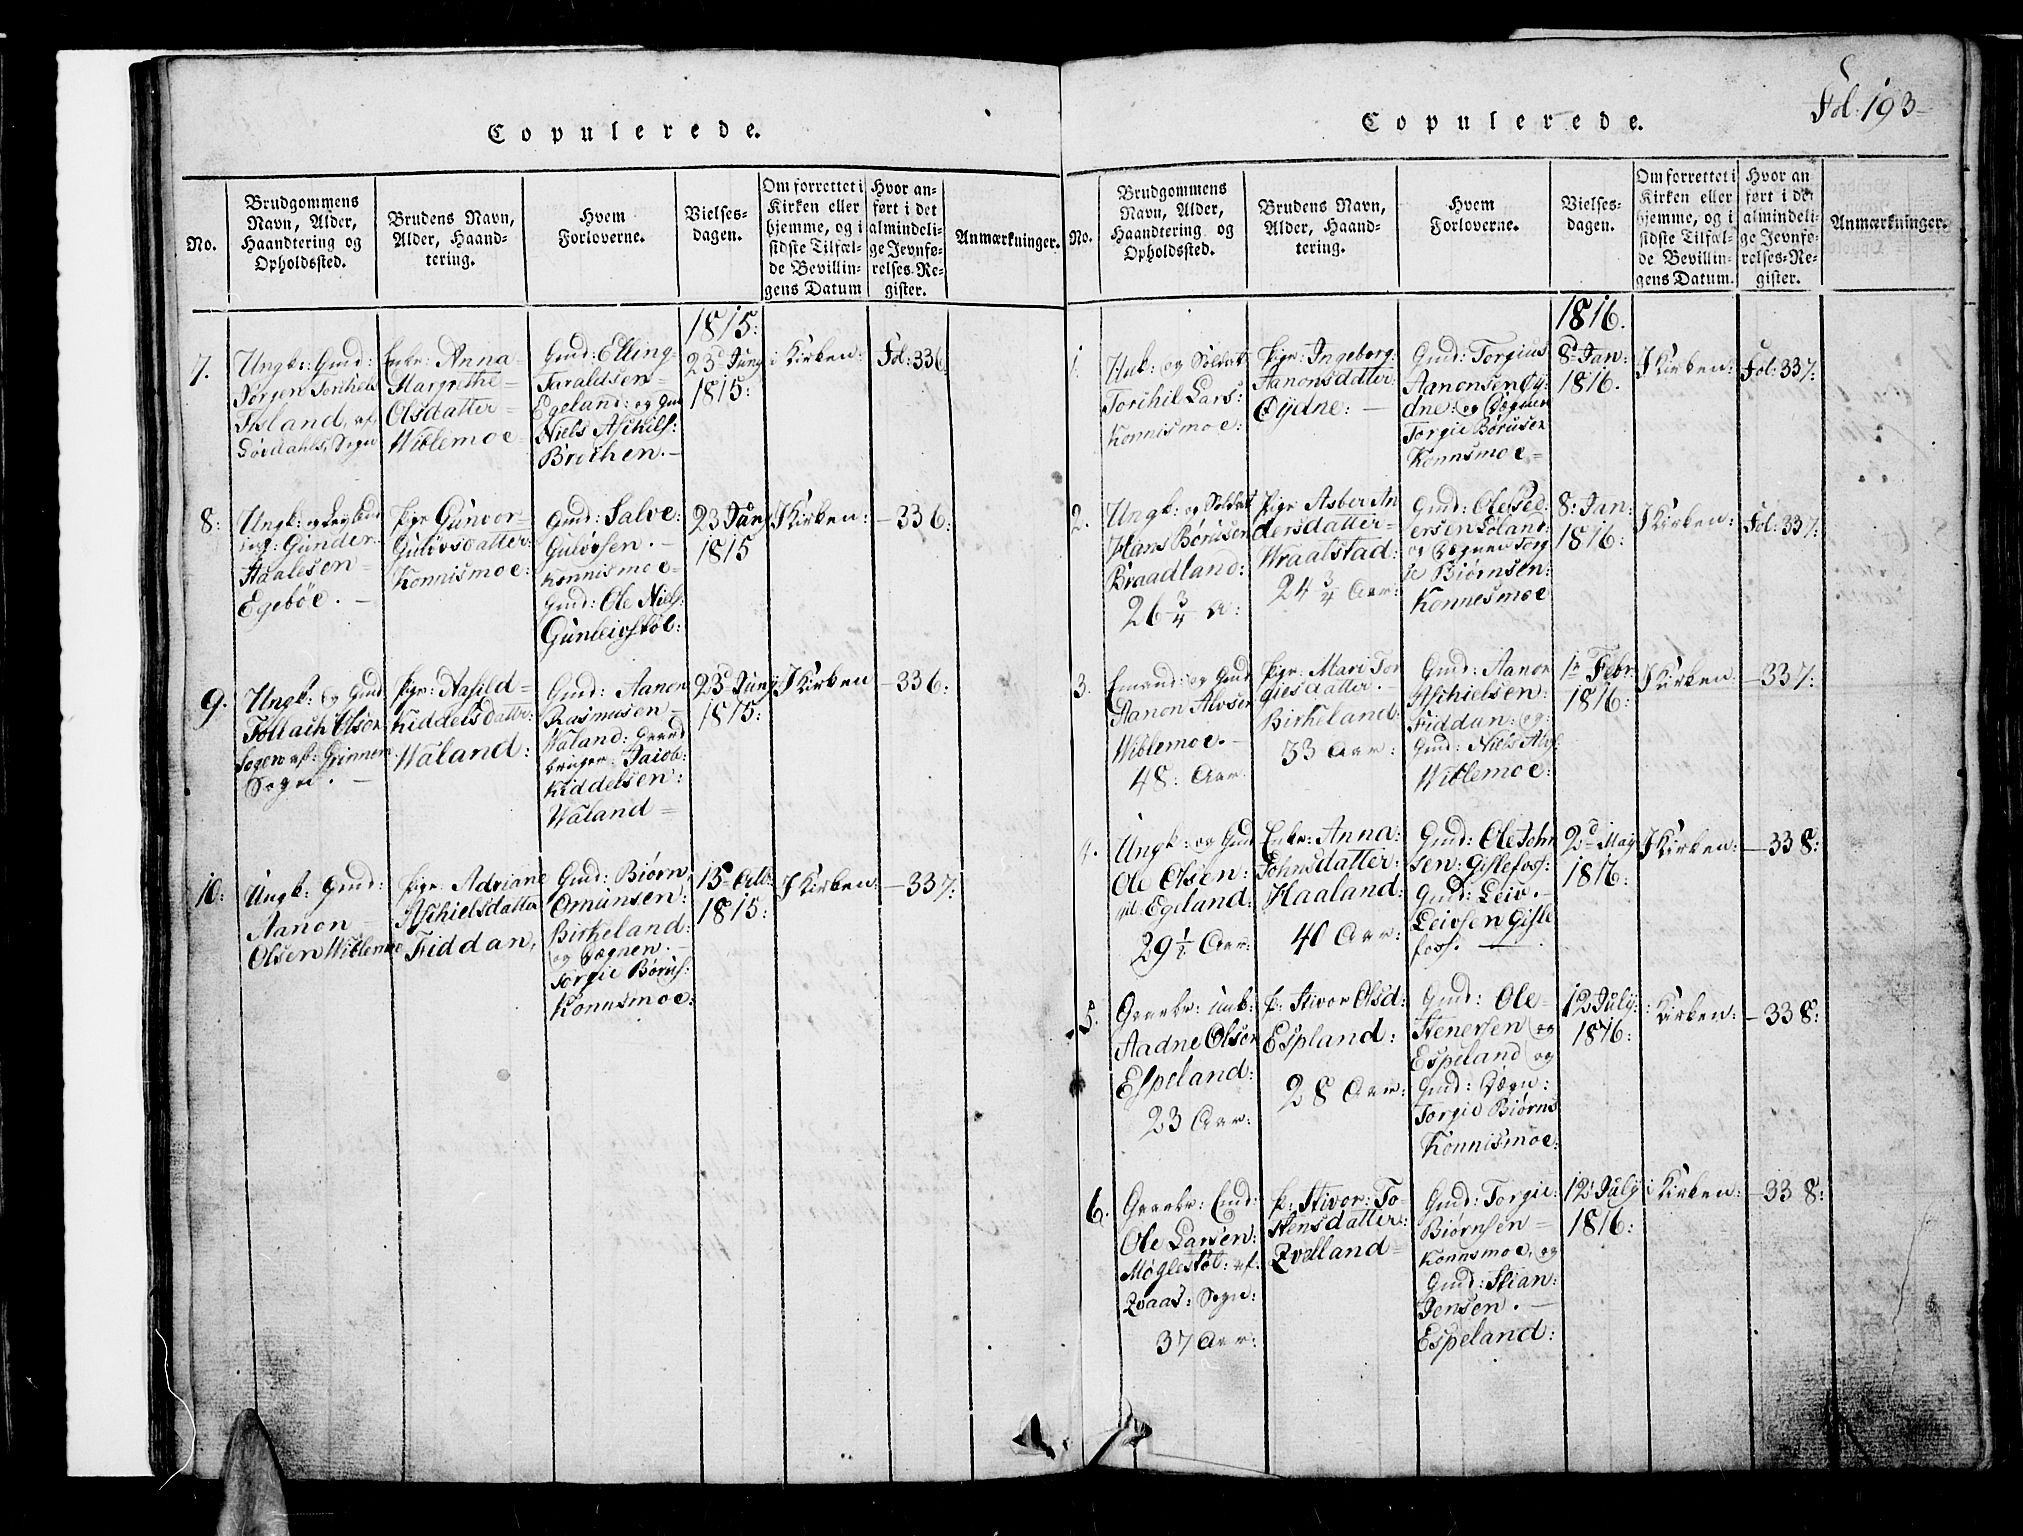 Copulerede.
No.
Brudgommens
Navn, Alder,
Haandtering og
Opholdssted.
Brudens Navn,
Alder, Haand-
tering.
Hvem
Forloverne.
Vielses-
dagen.
Om forrettet i
Kirken eller
hjemme, og i
sidste Tilfæl-
de Bevillin-
gens Datum
Hvor an-
ført i det
almindeli-
ge Jevnfø-
relses-Re-
gister.
Anmærkninger.
1815:
7.
Ungk: Gmd:
Jørgen
Sogn
Enke: Anna
Margrethe
Olsdatter
Wiblemoe
Gmd: Elling
Taraldsen
Egeland: og Gmd
Niels
23d Juny
1815:
i Kirken:
Fol: 336
8:
Ungk:
Gunder
Egebøe.
Pige Gunvor
Guløvsdatter:
Konnismoe:
Gmd: Salve:
Guløvsen.
Konnismoe
Gmd: Ole Niels:
23 Juny
1815
I Kirken:
336:
9.
Ungk: og Gmd
Tollach Olsen
Sogn.
Pige: Aasild
Kiddelsdatter:
Waland:
Gmd: Aanon
Rasmusen
Waland:
Jacob
Kiddelsen:
Waland
23d Juny
1815:
I Kirken
336:
10:
Ungk: Gmd:
Aanon
Olsen Wiblemoe
Pige: Adriane
Aschielsdatter
Fiddan,
Gmd: Biørn
Omunsen:
Birkeland:
og
Torgie Børus:
Konnsmoe:
15 Octb:
1815:
I Kirken:
337:
Fol: 193
Copulerede.
No.
Brudgommens
Navn, Alder,
Haandtering og
Opholdssted.
Brudens Navn,
Alder, Haand-
tering.
Hvem
Forloverne.
Vielses-
dagen.
Om forrettet i
Kirken eller
hjemme, og i
sidste Tilfæl-
de Bevillin-
gens Datum.
Hvor an
ført i det
almindeli-
ge Jevnfø-
relses-Re-
gister.
Anmærkninger.
1816.
1.
Unk: og Soldat
Torkil Lars:
Konnismoe:
Pige: Ingeborg
Aanonsdatter
Øydne:
Gmd: Torgius
Aanonsen Øy-
dne: og
Torgie Børusen
Konnsmoe
8d Jan:
1816.
I Kirken:
Fol: 337:
2.
Ungk: og Soldat
Hans Børusen
Braadland:
26 3/4 A:
Pige Asber An
dersdatter
Wraalstad:
24 3/4 Aar:
Gmd: Ole Ped
ersen
og Torg
ie Biørnsen:
Konnesmoe
8: Jan:
1816:
I Kirken:
Fol: 337:
3.
Enmand: og Gmd
Aanon Alvsen
Wiblemoe.
48: Aar:
Pige: Mari Tor
giesdatter.
Birkeland:
33 Aar:
Gmd: Aanon
Aschielsen:
Fiddan: og:
Gmd: Niels
Wiblemoe:
Febr
1816:
I Kirken:
337:
4.
Ungk: og Gmd
Ole Olsen:
Egeland:
29 1/2 Aar:
Enke: Anna:
Johnsdatter:
Haaland:
40 Aar:
Gmd: Ole John
sen: Gislefoss:
Gmd: Leiv.
Leivsen Gisle
foss.
2d May
1816:
I Kirken:
338:
5.
Aadne Olsen
Espeland:
23 Aar:
P: Stivor Olsd:
Espland:
28 Aar:
Gmd: Ole
Stenersen og
Espeland og
Gmd:
Torgie Biørns
Konnismoe:
12 July:
1816:
i Kirken:
338:
6.
Ole Larsen:
Sogn:
37 Aar:
P: Stivor: To-
stensdatter:
Qvelland
Gmd: Torgie:
Biørnsen
Konnsmoe, og
Gmd: Stian:
Jensen.
Espeland:
12 July
1816:
i Kirken:
338: